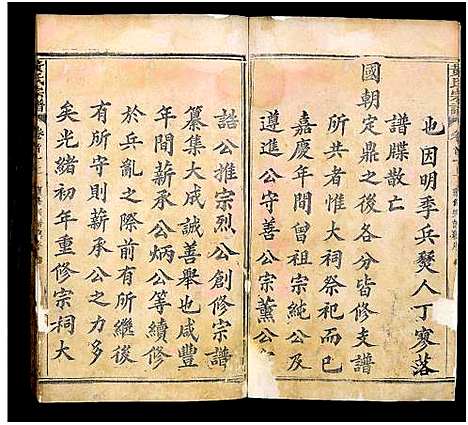 也因明季兵燹人丁寥落
譜牒散亡
國朝定鼎之後各分皆修支譜
所共者惟大祠祭祀而已
嘉慶年間曾祖宗純公及
遵進公守善公宗薰公
誥公推宗烈公創修宗譜
纂集大成誠善舉也咸豐
年間薪承公炳公等續修
於兵亂之際前有所繼後
有所守則薪承公之力多
矣光緒初年重修宗祠大